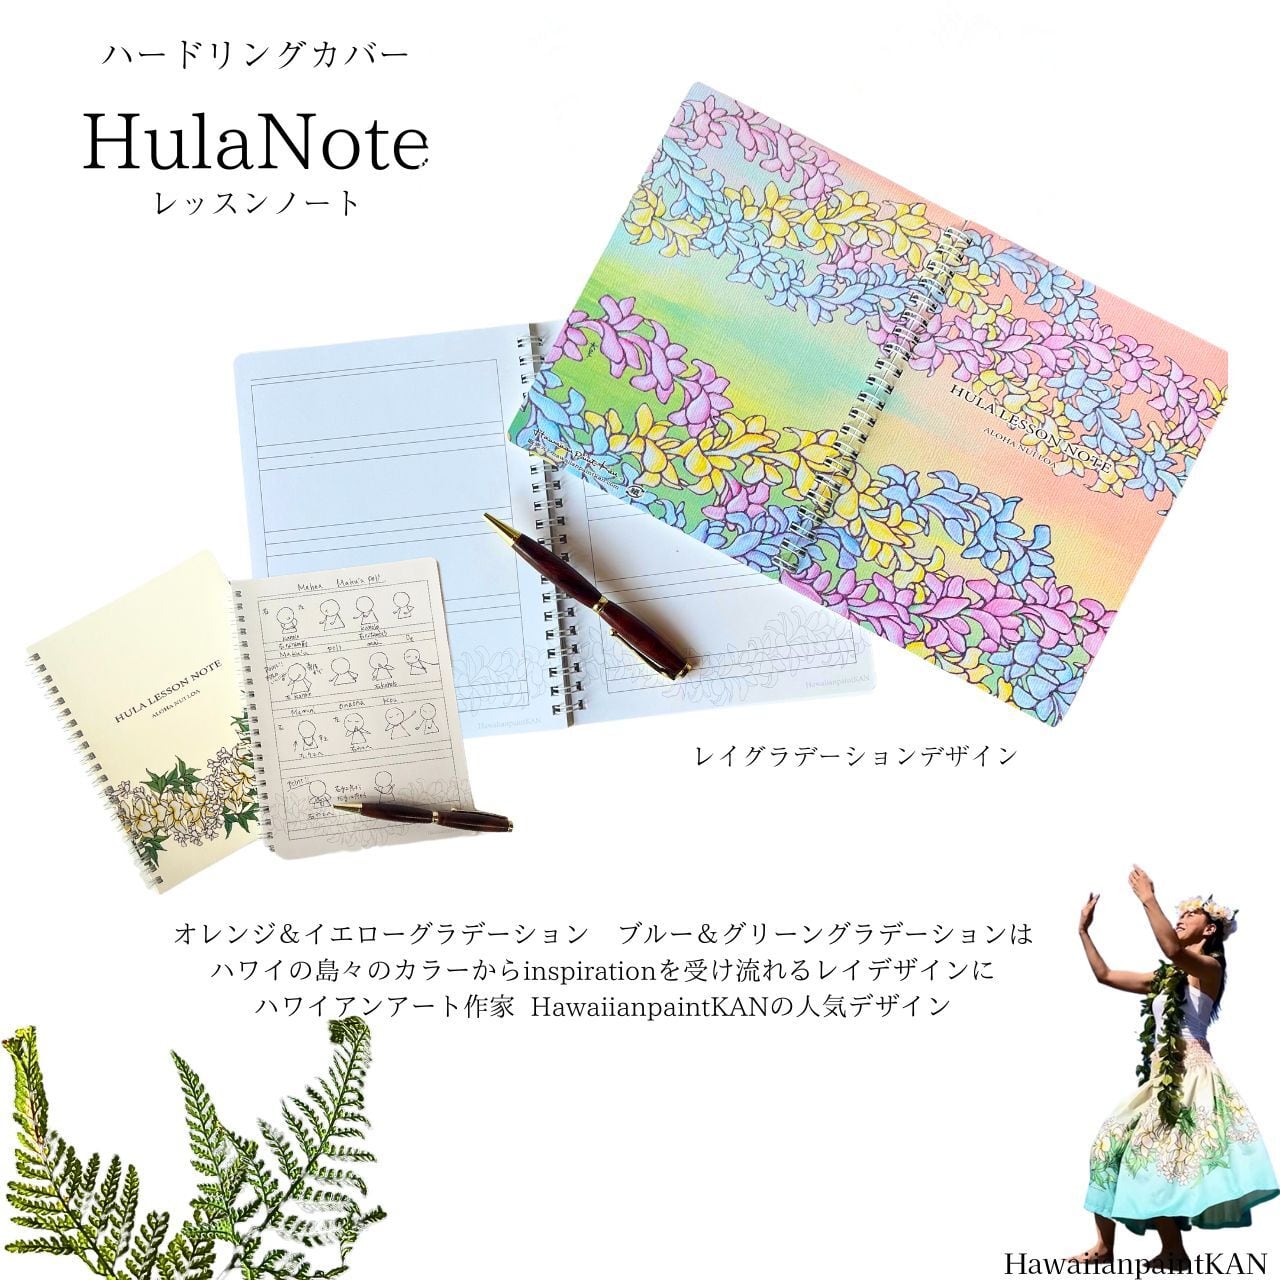 ハードリングカバー
HulaNote
レッスンノート
HULA LESSON NOTE
ALOHA NUI LOA
HawaiianpaintKAN
HawaiianpaintKAN
HULA LESSON NOTE
ALOHA NUI LOA
レイグラデーションデザイン
オレンジ&イエローグラデーション　ブルー&グリーングラデーションは
ハワイの島々のカラーからinspirationを受け流れるレイデザインに
ハワイアンアート作家 HawaiianpaintKANの人気デザイン
HawaiianpaintKAN